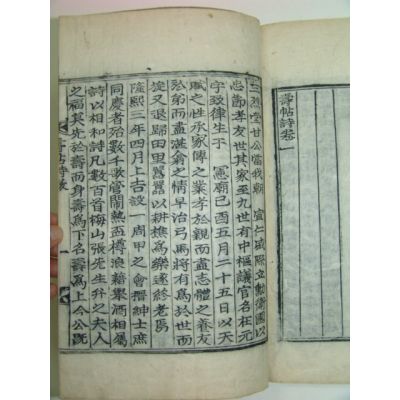 壽帖詩卷一
三烈堂甘公當我朝 宣仁盛際立勳衛國以
忠節孝友世其家至九世有中樞議官名在元
字致律生于 憲廟己酉五月二十五日以天
賦之性承家傳之業孝於親而盡志體之養友
於弟而盡湛翕之情早治弓馬將有爲於世而
旋又退歸田里囂囂以耕樵爲樂遂終老焉
隆熙三年四月上吉設一周甲之會搢紳士庶
同慶者殆數千歌管鬧熱盃樽浪藉擧酒相屬
詩以相和詩凡數百首梅山張先生弁之夫人
之福莫先於壽而身壽爲下名壽爲上今公旣